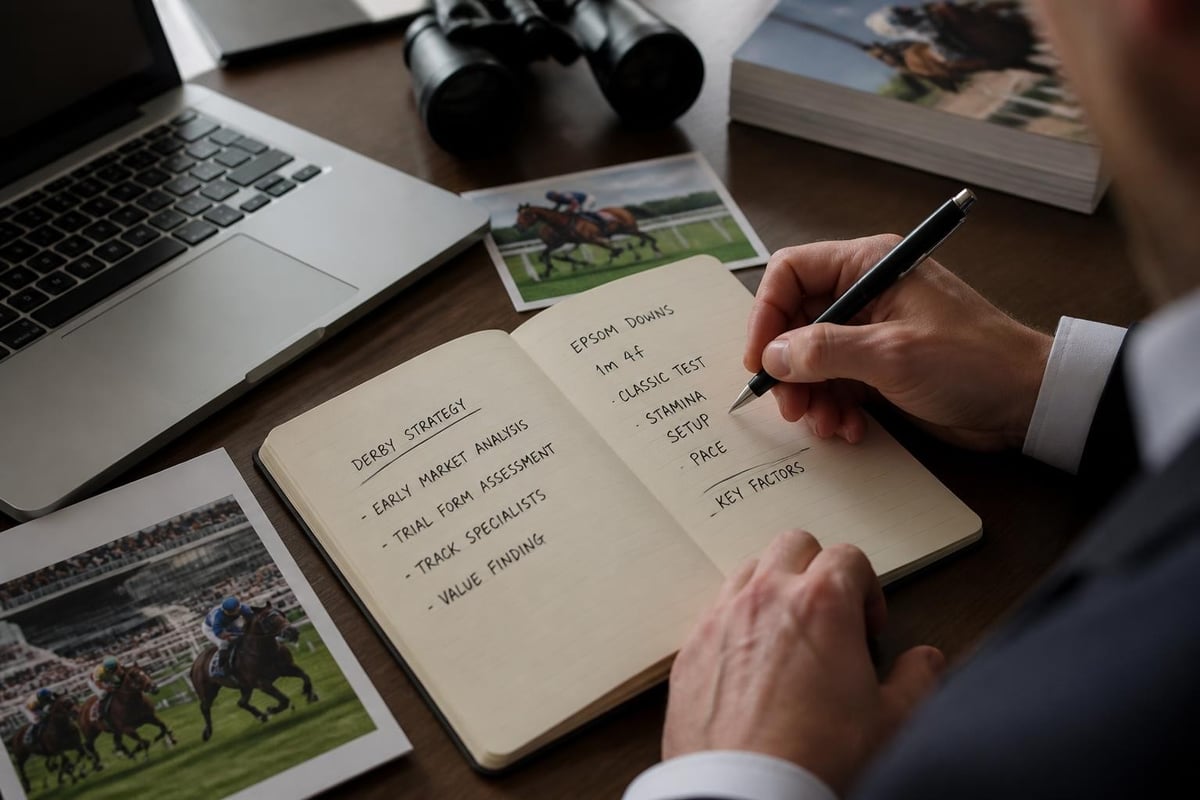 DERBY STRATEGY
- EARLY MARKET ANALYSIS
- TRIAL FORM ASSESSMENT
- TRACK SPECIALISTS
- VALUE FINDING
EPSOM DOWNS
1m 4f
· CLASSIC TEST
· STAMINA
SETUP
· PACE
- KEY FACTORS